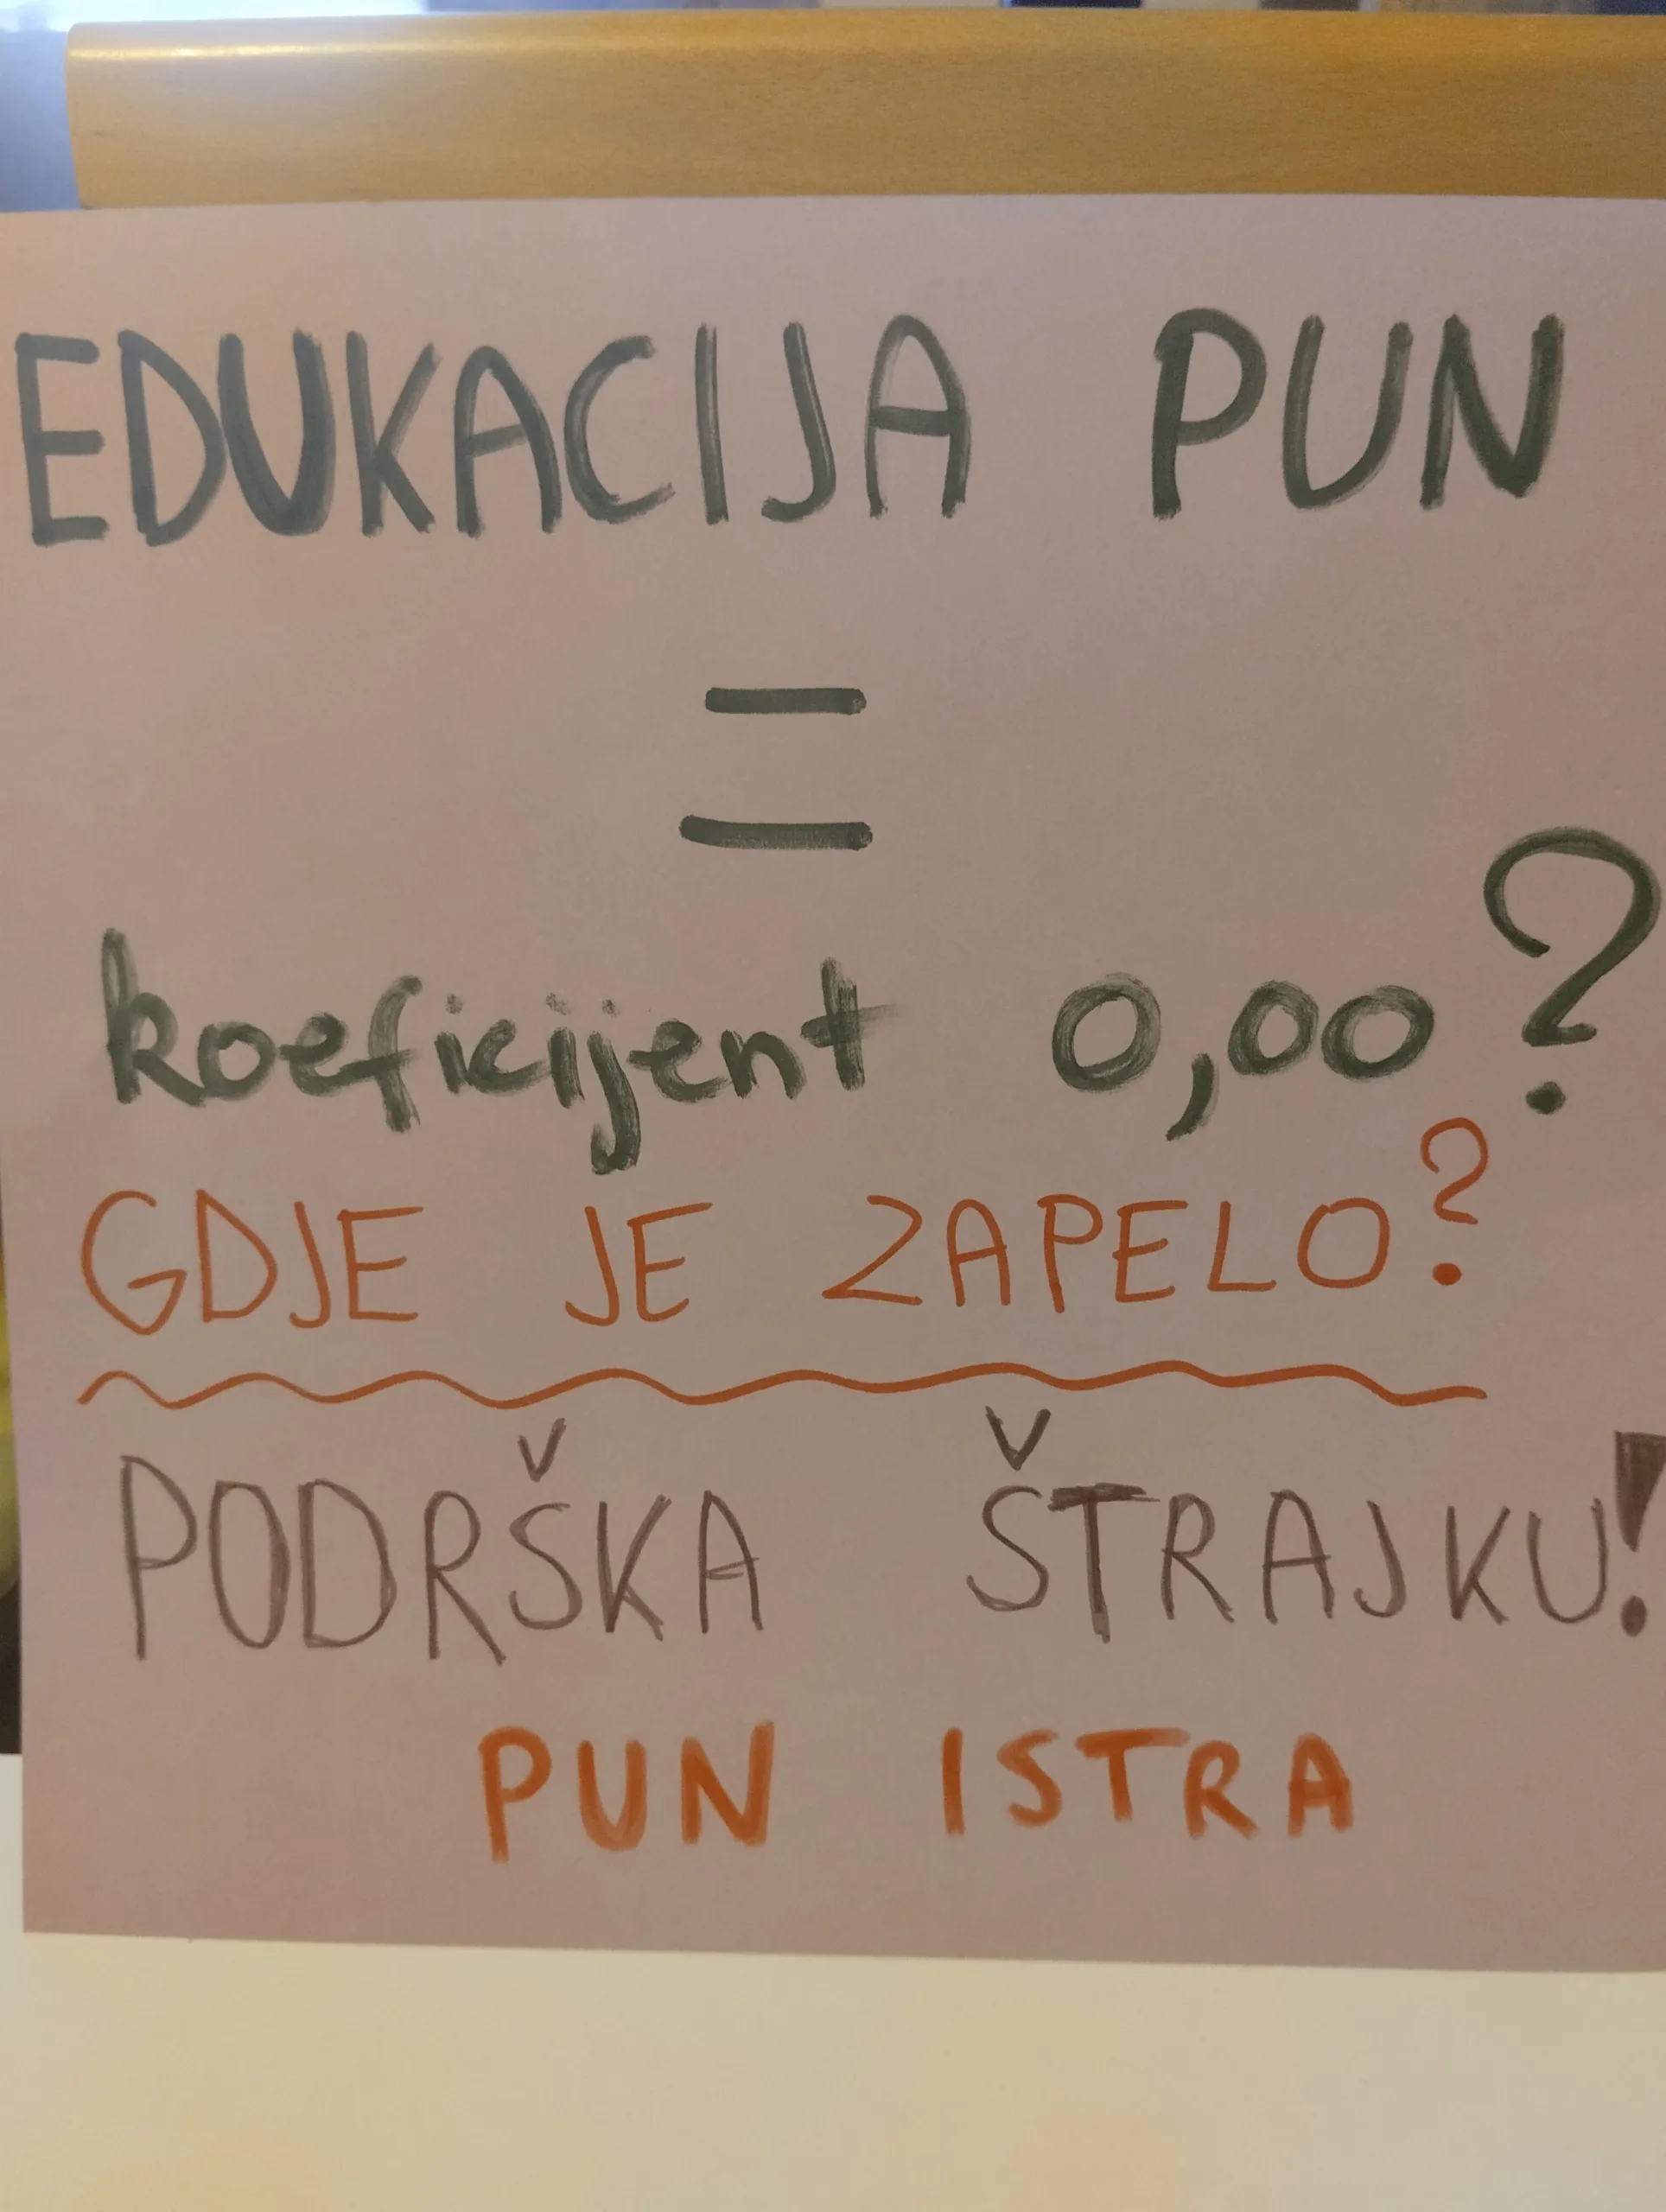 EDUKACIJA PUN
=
koeficijent 0,00?
GDJE JE ZAPELO?
PODRŠKA ŠTRAJKU!
PUN ISTRA